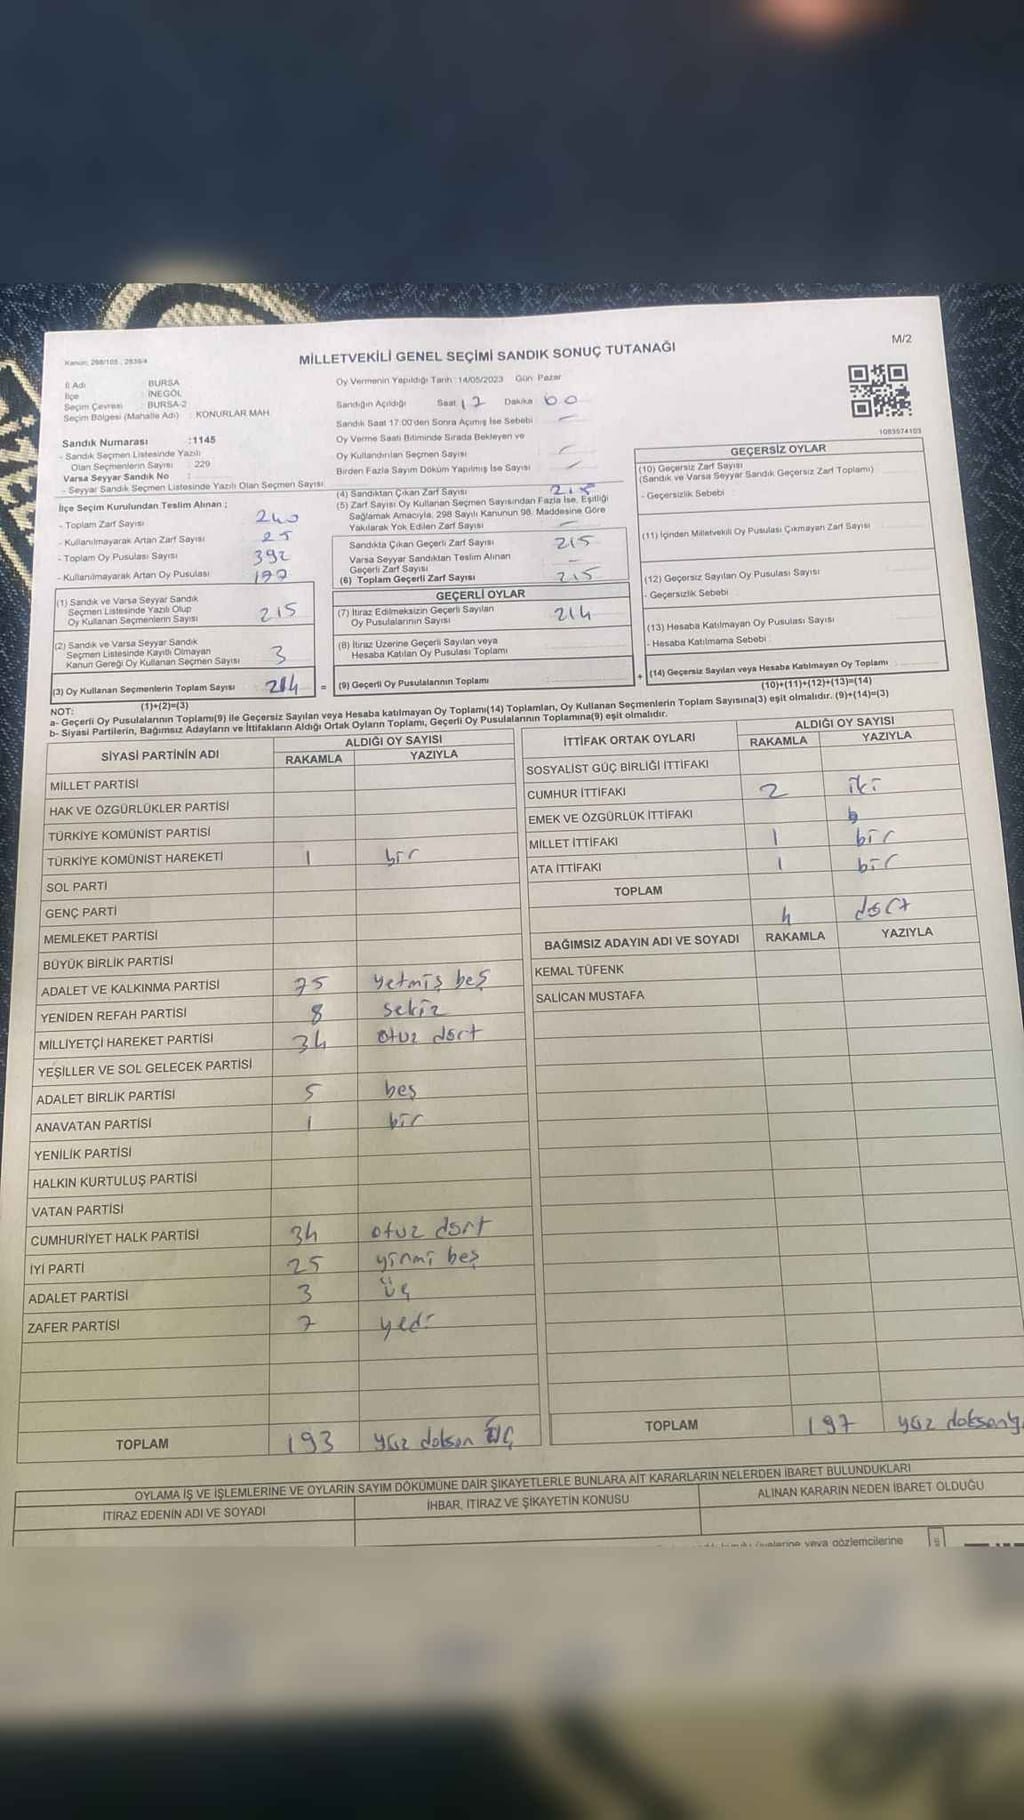 Kanun: 298/105 , 2839/4
MİLLETVEKİLİ GENEL SEÇİMİ SANDIK SONUÇ TUTANAĞI
M/2
İl Adı : BURSA
İlçe : İNEGÖL
Seçim Çevresi : BURSA-2
Seçim Bölgesi (Mahalle Adı) : KONURLAR MAH
Sandık Numarası :1145
- Sandık Seçmen Listesinde Yazılı
Olan Seçmenlerin Sayısı : 229
Varsa Seyyar Sandık No :
- Seyyar Sandık Seçmen Listesinde Yazılı Olan Seçmen Sayısı
Oy Vermenin Yapıldığı Tarih :14/05/2023 Gün: Pazar
Sandığın Açıldığı Saat 17 Dakika 00
Sandık Saat 17:00'den Sonra Açımış İse Sebebi -
Oy Verme Saati Bitiminde Sırada Bekleyen ve
Oy Kullandırılan Seçmen Sayısı -
Birden Fazla Sayım Döküm Yapılmış İse Sayısı -
1083574103
İlçe Seçim Kurulundan Teslim Alınan ;
- Toplam Zarf Sayısı 240
- Kullanılmayarak Artan Zarf Sayısı 25
- Toplam Oy Pusulası Sayısı 392
- Kullanılmayarak Artan Oy Pusulası
(1) Sandık ve Varsa Seyyar Sandık
Seçmen Listesinde Yazılı Olup
Oy Kullanan Seçmenlerin Sayısı 215
(2) Sandık ve Varsa Seyyar Sandık
Seçmen Listesinde Kayıtlı Olmayan
Kanun Gereği Oy Kullanan Seçmen Sayısı 3
(3) Oy Kullanan Seçmenlerin Toplam Sayısı 214 =
(1)+(2)=(3)
(4) Sandıktan Çıkan Zarf Sayısı 215
(5) Zarf Sayısı Oy Kullanan Seçmen Sayısından Fazla İse, Eşitliği
Sağlamak Amacıyla, 298 Sayılı Kanunun 98. Maddesine Göre
Yakılarak Yok Edilen Zarf Sayısı -
Sandıkta Çıkan Geçerli Zarf Sayısı 215
Varsa Seyyar Sandıktan Teslim Alınan
Geçerli Zarf Sayısı -
(6) Toplam Geçerli Zarf Sayısı 215
GEÇERLİ OYLAR
(7) İtiraz Edilmeksizin Geçerli Sayılan
Oy Pusulalarının Sayısı 214
(8) İtiraz Üzerine Geçerli Sayılan veya
Hesaba Katılan Oy Pusulası Toplamı
(9) Geçerli Oy Pusulalarının Toplamı +
GEÇERSİZ OYLAR
(10) Geçersiz Zarf Sayısı
(Sandık ve Varsa Seyyar Sandık Geçersiz Zarf Toplamı)
- Geçersizlik Sebebi
(11) İçinden Milletvekili Oy Pusulası Çıkmayan Zarf Sayısı
(12) Geçersiz Sayılan Oy Pusulası Sayısı
- Geçersizlik Sebebi
(13) Hesaba Katılmayan Oy Pusulası Sayısı
- Hesaba Katılmama Sebebi
(14) Geçersiz Sayılan veya Hesaba Katılmayan Oy Toplamı
(10)+(11)+(12)+(13)=(14)
NOT:
a- Geçerli Oy Pusulalarının Toplamı(9) ile Geçersiz Sayılan veya Hesaba katılmayan Oy Toplamı(14) Toplamları, Oy Kullanan Seçmenlerin Toplam Sayısına(3) eşit olmalıdır. (9)+(14)=(3)
b- Siyasi Partilerin, Bağımsız Adayların ve İttifakların Aldığı Ortak Oyların Toplamı, Geçerli Oy Pusulalarının Toplamına(9) eşit olmalıdır.
SİYASİ PARTİNİN ADI ALDIĞI OY SAYISI
RAKAMLA YAZIYLA
MİLLET PARTİSİ
HAK VE ÖZGÜRLÜKLER PARTİSİ
TÜRKİYE KOMÜNİST PARTİSİ
TÜRKİYE KOMÜNİST HAREKETİ 1 bir
SOL PARTİ
GENÇ PARTİ
MEMLEKET PARTİSİ
BÜYÜK BİRLİK PARTİSİ
ADALET VE KALKINMA PARTİSİ 75 yetmiş beş
YENİDEN REFAH PARTİSİ 8 sekiz
MİLLİYETÇİ HAREKET PARTİSİ 34 otuz dört
YEŞİLLER VE SOL GELECEK PARTİSİ
ADALET BİRLİK PARTİSİ 5 beş
ANAVATAN PARTİSİ 1 bir
YENİLİK PARTİSİ
HALKIN KURTULUŞ PARTİSİ
VATAN PARTİSİ
CUMHURİYET HALK PARTİSİ 34 otuz dört
İYİ PARTİ 25 yirmi beş
ADALET PARTİSİ 3 üç
ZAFER PARTİSİ 7 yedi
TOPLAM 193 yüz doksan üç
İTTİFAK ORTAK OYLARI ALDIĞI OY SAYISI
RAKAMLA YAZIYLA
SOSYALİST GÜÇ BİRLİĞİ İTTİFAKI
CUMHUR İTTİFAKI 2 iki
EMEK VE ÖZGÜRLÜK İTTİFAKI
MİLLET İTTİFAKI 1 bir
ATA İTTİFAKI 1 bir
TOPLAM
4 dört
BAĞIMSIZ ADAYIN ADI VE SOYADI RAKAMLA YAZIYLA
KEMAL TÜFENK
SALİCAN MUSTAFA
TOPLAM 197 yüz doksan
OYLAMA İŞ VE İŞLEMLERİNE VE OYLARIN SAYIM DÖKÜMÜNE DAİR ŞİKAYETLERLE BUNLARA AİT KARARLARIN NELERDEN İBARET BULUNDUKLARI
İTİRAZ EDENİN ADI VE SOYADI İHBAR, İTİRAZ VE ŞİKAYETİN KONUSU ALINAN KARARIN NEDEN İBARET OLDUĞU
üyelerine veya gözlemcilerine